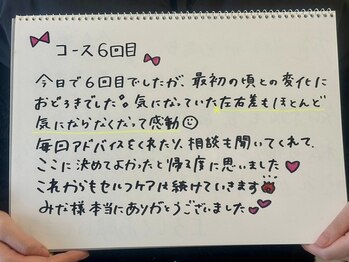 コース6回目
今日で6回目でしたが、最初の頃との変化に
おどろきでした。気になっていた左右差もほとんど
気にならなくなって感動
毎回アドバイスをくれたり、相談も聞いてくれて、
ここに決めてよかったと帰る度に思いました
これからもセルフケアは続けていきます
みな様本当にありがとうございました